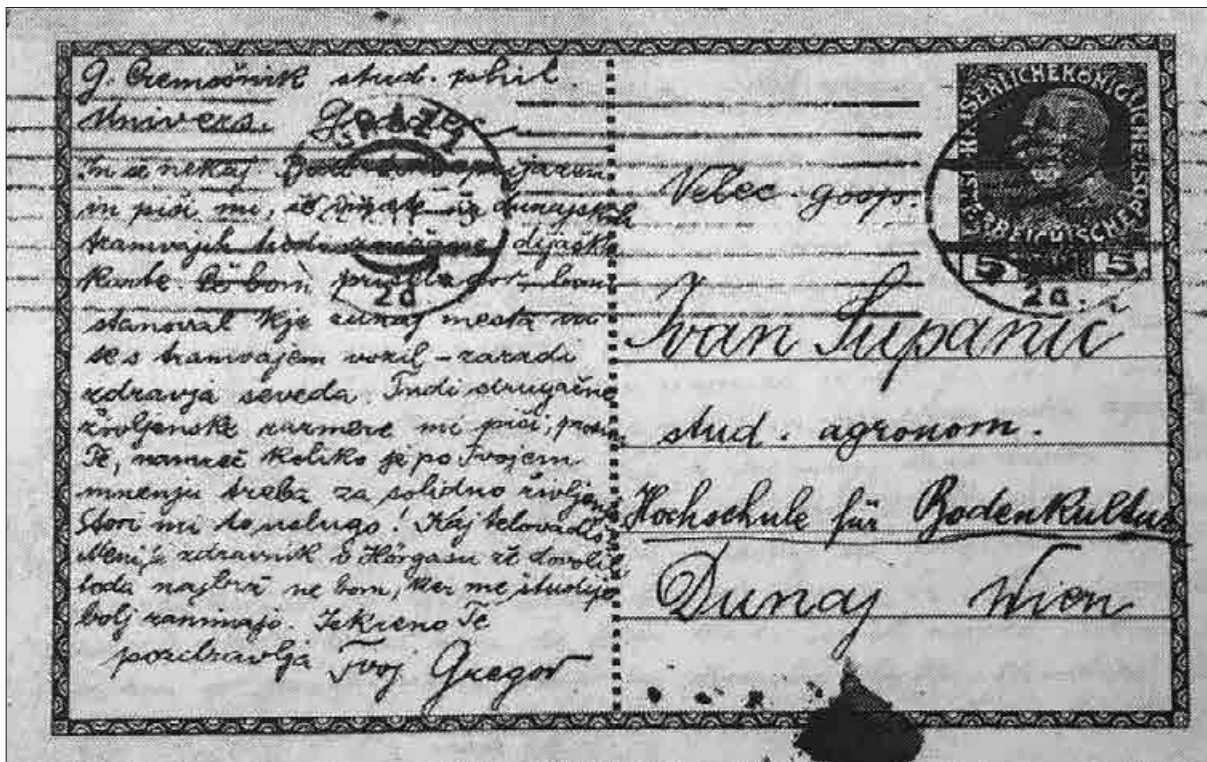 G. Čremošnik stud. phil.
Univers. Gradec
In še nekaj. Bodi tako prijazen
in piši mi, če dijak iz dunajskih
tramvajih tudi dijaške
karte. Če bom prišel gor, bom
stanoval kje zunaj mesta in
se s tramvajem vozil – zaradi
zdravja seveda. Tudi drugačne
življenske razmere mi piši, prosim
Te, namreč koliko je po Tvojem
mnenju treba za solidno življenje
Stori mi to uslugo! Kaj telovadiš
Meni je zdravnik v Hörgasu že dovolil,
toda najbrž ne bom, ker me študije
bolj zanimajo. Iskreno Te
pozdravlja Tvoj Gregor
GRAZ 1
2a
KAISERLICHE KÖNIGLICHE
ÖSTERREICHISCHE POST
5 5
2a
Velec. gosp.
Ivan Županič
stud. agronom.
Hochschule für Bodenkultur
Dunaj Wien